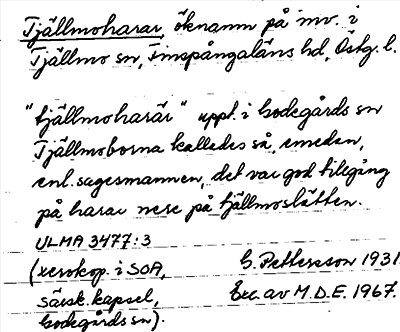 Tjällmoharar, öknamn på inv. i
Tjällmo sn, Finspångaläns hd, Östg. l.
"tjällmoharär" uppt. i Godegårds sn
Tjällmoborna kallades så, emedan,
enl. sagesmannen, det var god tillgång
på harar nere på tjällmoslätten.
ULMA 3477:3
(xerokop. i SOA, G. Pettersson 1931
särsk. kapsel, Exc. av M.D.E. 1967.
Godegårds sn).